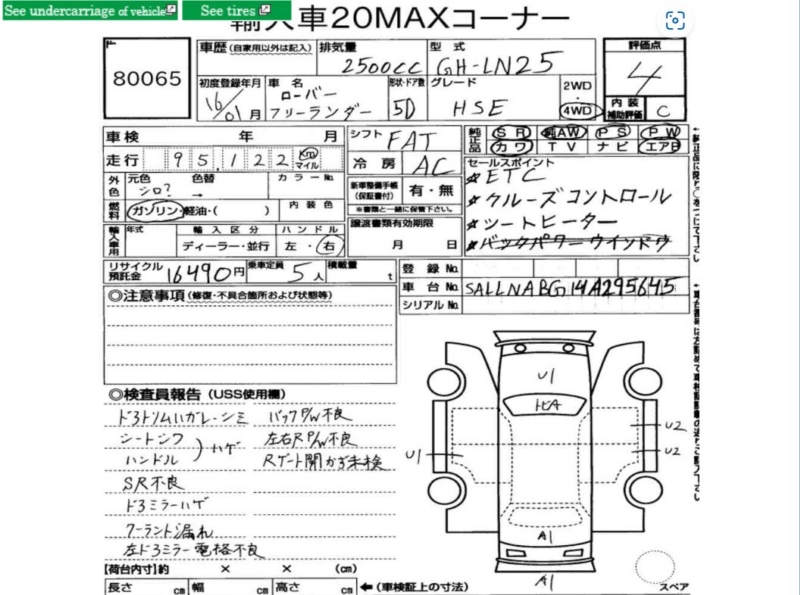 See undercarriage of vehicle
See tires
輸入車20MAXコーナー
80065
車歴 (自家用以外は記入)
排気量
2500cc
型式
GH-LN25
評価点
4
初度登録年月
16/01月
車名
ローバー
フリーランダー
形状・ドア数
5D
グレード
HSE
2WD
・
4WD
内装
補助評価
C
車検 年 月
シフト FAT
純正品
SR AW PS PW
カワ TV ナビ エアB
走行 95,122 Km マイル
冷房 AC
セールスポイント
★ETC
★クルーズコントロール
★シートヒーター
★バックパワーウインドウ
外色
元色 色替
シロ? →
カラーNo.
新車整備手帳
(保証書付)
有・無
※書類と一緒に保管下さい。
燃料
ガソリン・軽油・( )
内装色
譲渡書類有効期限
月 日
輸入車用
年式
輸入区分
ディーラー・並行
ハンドル
左・右
リサイクル
預託金
16490円
乗車定員
5人
積載量
t
登録No.
車台No. SALLNABG14A295645
シリアルNo.
◎注意事項 (修復・不具合箇所および状態等)
◎検査員報告 (USS使用欄)
ドミトリムハガレ・シミ
バックP/W不良
シートシワ
ハンドル
)ハゲ
左右RP/W不良
Rゲート開かず未検
SR不良
ドミラーハゲ
クーラント漏れ
左ドミラー電格不良
U1
トビA
U1
U2
U2
A1
A1
【荷台内寸】約 × × (cm)
長さ cm 幅 cm 高さ cm
←(車検証上の寸法)
スペア